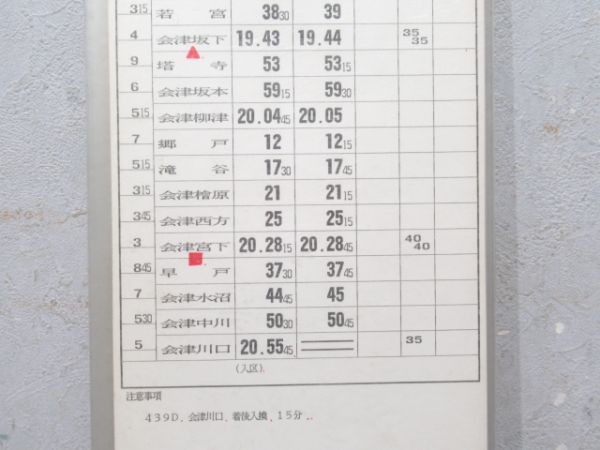 315 若宮 3830 39
4 会津坂下 19.43 19.44 35 35
9 塔寺 53 5315
6 会津坂本 5915 5930
515 会津柳津 20.0445 20.05
7 郷戸 12 1215
515 滝谷 1730 1745
315 会津檜原 21 2115
345 会津西方 25 2515
3 会津宮下 20.2815 20.2845 40 40
845 早戸 3730 3745
7 会津水沼 4445 45
530 会津中川 5030 5045
5 会津川口 20.5545 35
(入区).
注意事項
439D. 会津川口. 着後入換. 15分..